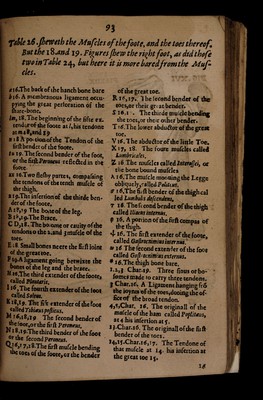 93
Table 26. sheweth the Muscles of the foote, and the toes thereof,
But the 18. and 19. Figures shew the right foot, as did those
two in Table 24, but heere it is more bared from the Mus-
cles.
a 16. The back of the hanch bone bare
β 16. A membranous ligament occu-
pying the great perforation of the
share-bone.
18. The beginning of the fift ex-
tender of the foote as l, his tendone
at and 19
18 A portion of the Tendon of the
first bender of the foote.
19. The second bender of the foot,
or the first Peronæus reflected in the
foote
Two fleshy partes, compasing
the tendons of the tenth muscle of
the thigh.
19. The insertion of the thirde ben-
der of the foote,
A 17, 19 The bone of the leg.
B 17, 19. The Brace.
C D, 18. The bosome or cavity of the
tendons of the hand muscle of the
toes.
E 18 Small bones meet the first joint
of the great toe.
F 19. A ligament going betwixt the
bones of the leg and the brace.
The third extender of the foote,
called Plantaris.
16, The fourth extender of the foot
called Soleus.
18, 19. The sixt extender of the foot
called Tibiæus posticus.
M 16, 18, 19 The second bender of
the foot, or the first Peroneus,
N 18, 19. The third bender of the foot
or the second Peroneus.
Q 16, 17, 18. The first muscle bending
the toes of the foote, or the bender
of the great toe.
R. 16, 17, The second bender of the
toes, or their great bender.
S 16. The thirde muscle bending
the toes, or their other bender.
T 16. The lower abductor of the great
toe.
V 16. The abductor of the little Toe.
X 17, 18. The foure muscles called
Lumbricales.
Z 18 The muscles called Interossei, or
the bone bound muscles
16. The muscle mooving the Legge
obliquely, called Poliræus.
16. The first bender of the thigh called
led Lumbalis descendens,
16. The second bender of the thigh
called Iliacus internus,
16, A portion of the first compas of
the thigh.
16. The first extender of the foote,
called Gastrocnimius internus.
16 The second extender of the foote
called Gastrocnimius externus.
16. The thigh bone bare.
1.2.3 Char. 19. Three sinus or bo-
somes made to carry three tendons.
3 Char. 16. A Ligament hanging from
the joynts of the toes, doing the of-
fice of the broad tendon.
4, 5, Char. 16. The originall of the
muscle of the ham called Popliteus,
its his insertion at 5
13. Char. 16. The originall of the first
bender of the toes.
14, 15. Char. 16, 17. The Tendone of
that muscle at 14. his insertion at
the great toe 15.